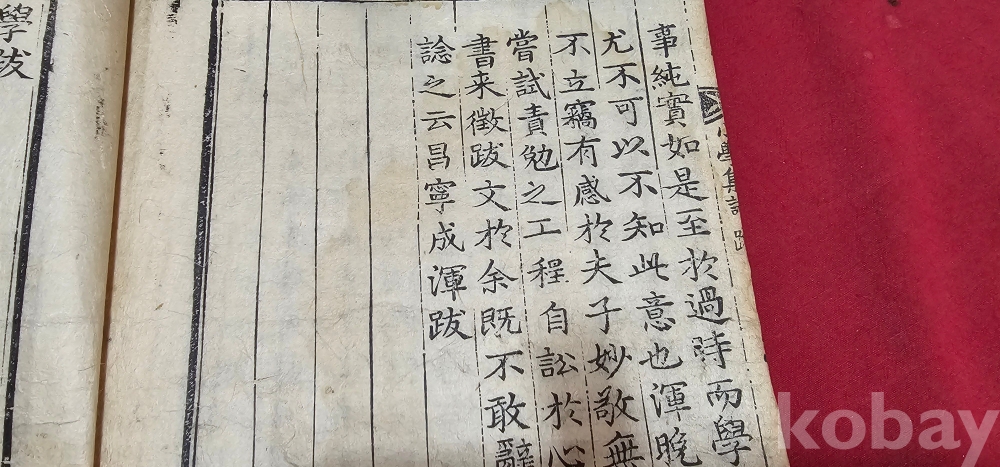 小學集註 跋
事純實如是至扵過時而學
尤不可以不知此意也渾晚
不立竊有感扵夫子妙敬無
嘗試責勉之工程自訟扵心
書来徵跋文扵余既不敢辭
諗之云昌寧成渾跋
學跋
kobay